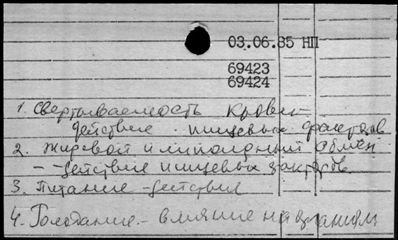 03.06.85 НП
69423
69424
1. Свертываемость крови -
действие пищевых факторов
2. Жировой и липоидный обмен
- - действие пищевых факторов.
3. Питание - действие
4. Голодание - влияние на организм